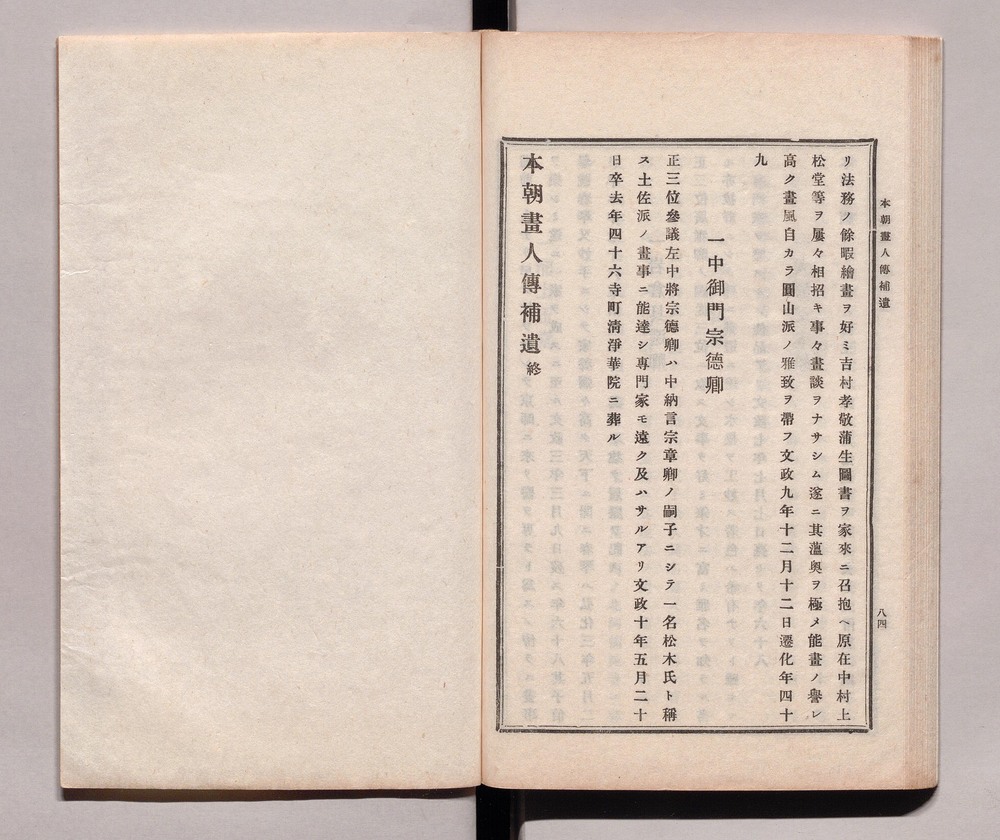 本朝畫人傳補遺
八四
リ法務ノ餘暇繪畫ヲ好ミ吉村孝敬蒲生圖書ヲ家來ニ召抱ヘ原在中村上
松堂等ヲ屢々相招キ事々畫談ヲナサシム遂ニ其薀奥ヲ極メ能畫ノ譽レ
高ク畫風自カラ圓山派ノ雅致ヲ帶フ文政九年十二月十二日遷化年四十
九
一中御門宗德卿
正三位參議左中將宗德卿ハ中納言宗章卿ノ嗣子ニシテ一名松木氏ト稱
ス土佐派ノ畫事ニ能達シ専門家モ遠ク及ハサルアリ文政十年五月二十
日卒去年四十六寺町淸淨華院ニ葬ル
本朝畫人傳補遺終